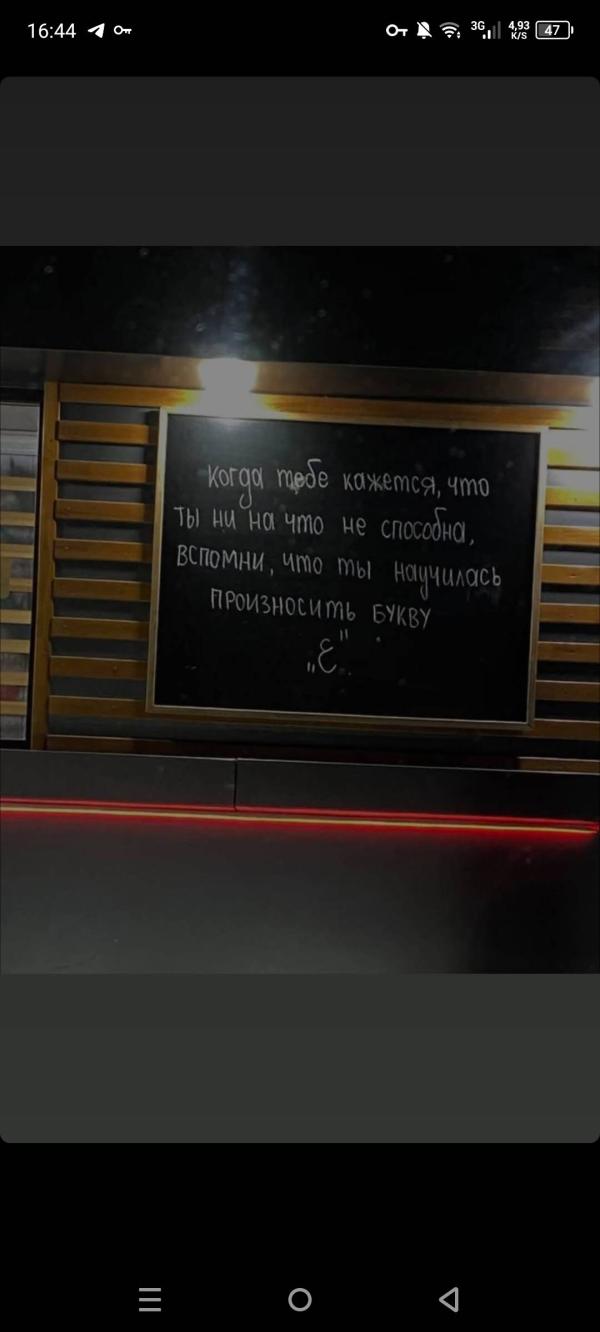 16:44
3G 4,93 K/S 47
Когда тебе кажется, что
ты ни на что не способна,
вспомни, что ты научилась
произносить букву
„ع"